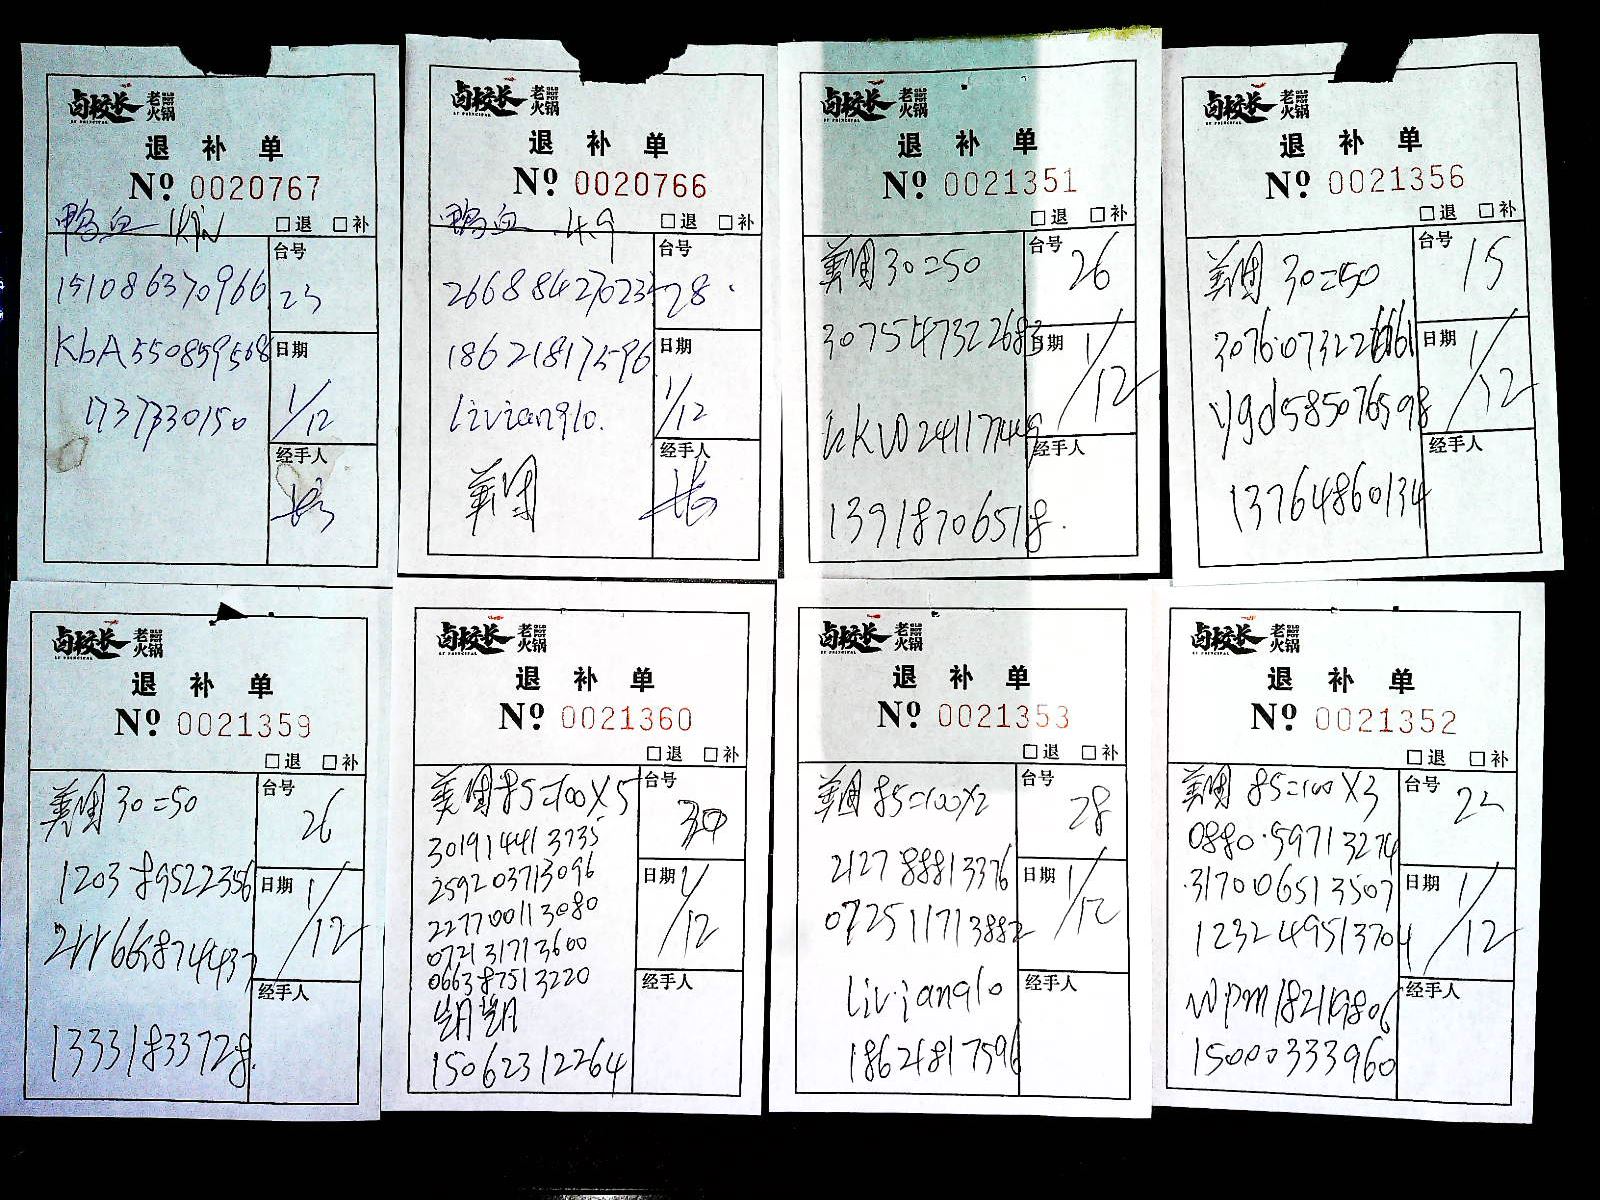 卤校长 老火锅
退 补 单
Nº 0020767
鸭血
□退 □补
151086370966
台号
23
KbA550859568
日期
1/12
17337330150
经手人
卤校长 老火锅
退 补 单
Nº 0020766
鸭血 4.9
□退 □补
台号
28
18621817596
日期
1/12
livianglo.
经手人
美团
卤校长 老火锅
退 补 单
Nº 0021351
□退 □补
美团 30=50
台号
26
3075547322683
日期
1/12
经手人
13918706518.
卤校长 老火锅
退 补 单
Nº 0021356
□退 □补
美团 30=50
台号
15
日期
1/12
ygd585076598
经手人
13764860134
卤校长 老火锅
退 补 单
Nº 0021359
□退 □补
美团 30=50
台号
26
120389522356
日期
1/12
经手人
13331833728.
卤校长 老火锅
退 补 单
Nº 0021360
□退 □补
美团85=100X5
台号
3019144413735
259203713096
日期
1/12
2277700113080
072131713600
066387513220
经手人
15062312264
卤校长 老火锅
退 补 单
Nº 0021353
□退 □补
美团 85=100X2
台号
28
212788813376
日期
1/12
072511713882
livianglo
经手人
18621817596
卤校长 老火锅
退 补 单
Nº 0021352
□退 □补
美团 85=100X3
台号
22
0880.59713274
317006513507
日期
1/12
123249513704
经手人
15000333960